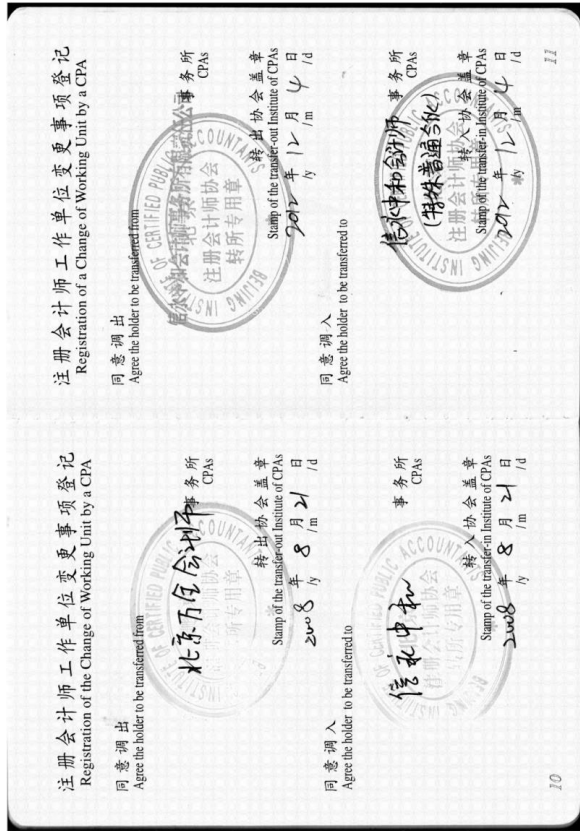 注册会计师工作单位变更事项登记
Registration of the Change of Working Unit by a CPA
同意调出
Agree the holder to be transferred from
北京万全会计师事务所
CPAs
CERTIFIED PUBLIC ACCOUNTANTS
所专用章
转出协会盖章
Stamp of the transfer-out Institute of CPAs
2008 年 8 月 21 日
/y /m /d
同意调入
Agree the holder to be transferred to
信永中和 事务所
CPAs
PUBLIC ACCOUNTANTS
注册会计师协会
转所专用章
转入协会盖章
Stamp of the transfer-in Institute of CPAs
2008 年 8 月 21 日
/y /m /d
10
注册会计师工作单位变更事项登记
Registration of a Change of Working Unit by a CPA
同意调出
Agree the holder to be transferred from
信永中和会计师事务所有限责任公司
事务所
CPAs
BEIJING INSTITUTE OF CERTIFIED PUBLIC ACCOUNTANTS
注册会计师协会
转所专用章
转出协会盖章
Stamp of the transfer-out Institute of CPAs
2012 年 12 月 4 日
/y /m /d
同意调入
Agree the holder to be transferred to
信永中和会计师 事务所
(特殊普通合伙)
CPAs
BEIJING INSTITUTE OF CERTIFIED PUBLIC ACCOUNTANTS
注册会计师协会
转所专用章
转入协会盖章
Stamp of the transfer-in Institute of CPAs
2012 年 12 月 4 日
/y /m /d
11